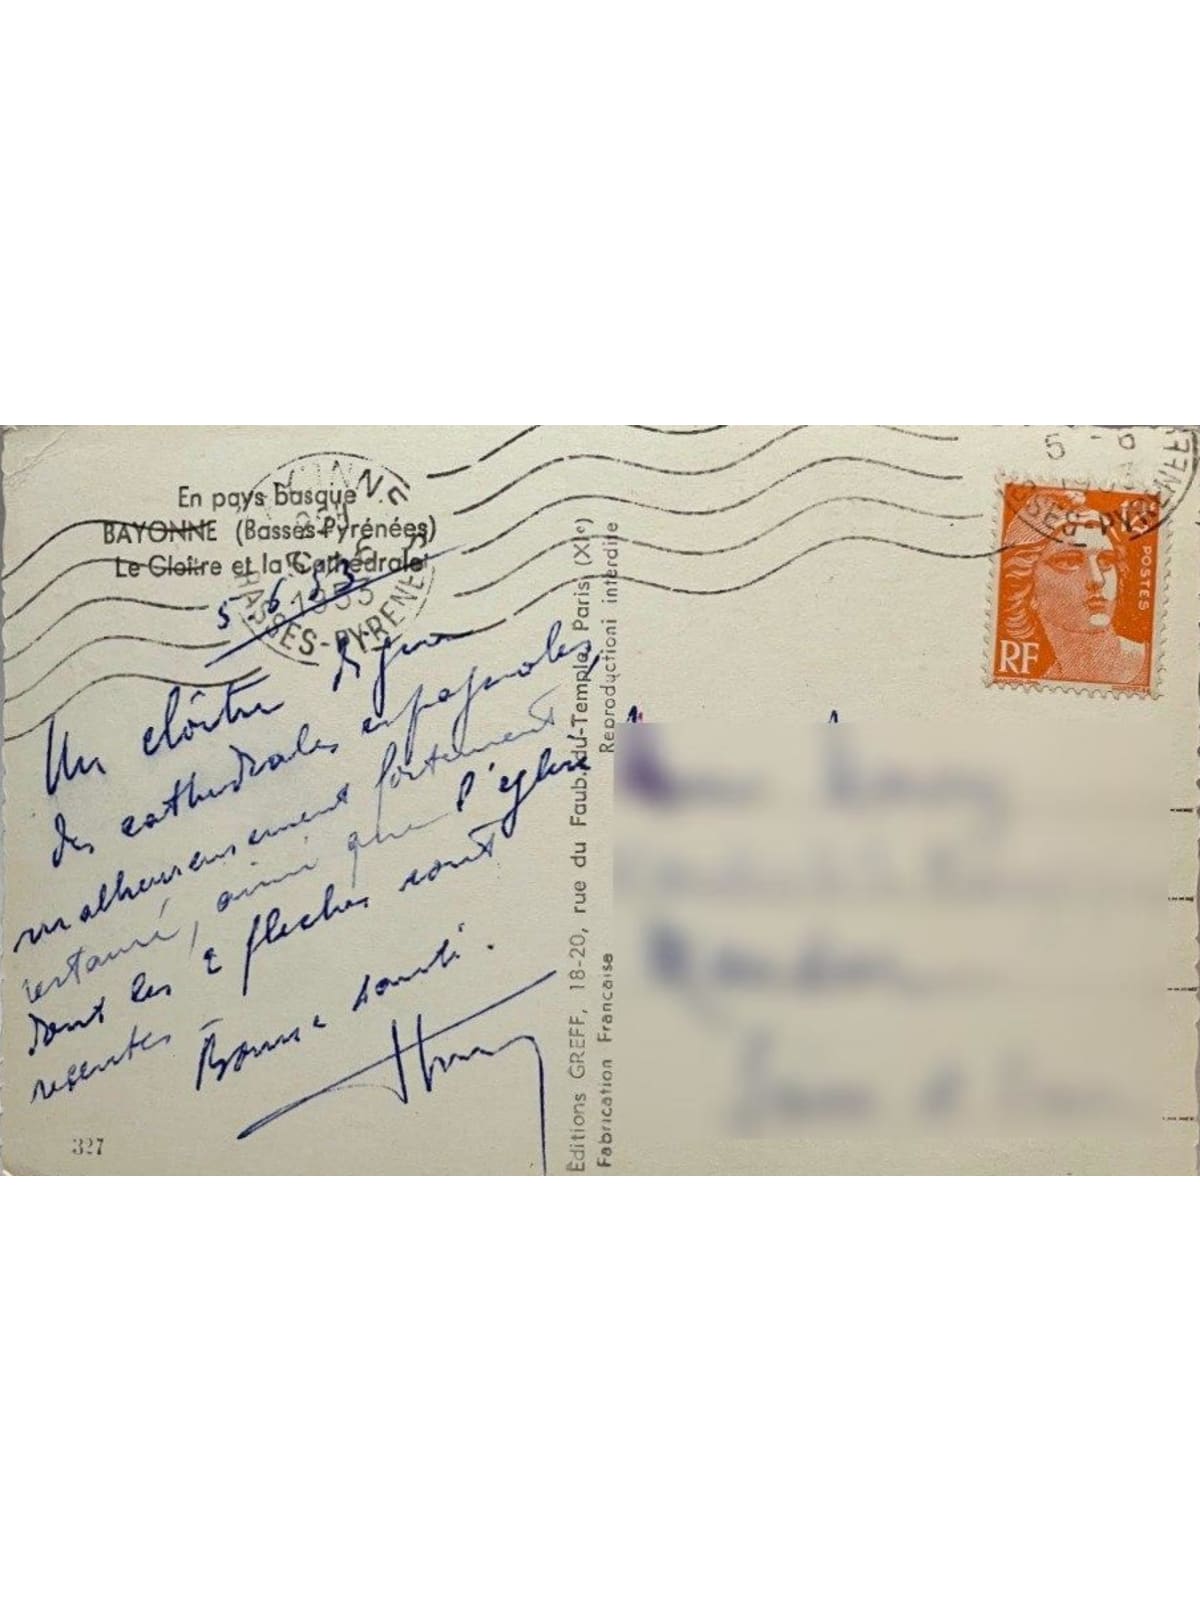 En pays basque
BAYONNE (Basses-Pyrénées)
Le Cloître et la Cathédrale
5.6.53
Un cloître digne
des cathédrales espagnoles,
malheureusement fortement
restauré, ainsi que l'église
dont les 2 flèches sont
récentes.
Bonne santé.
327
Éditions GREFF, 18-20, rue du Faub.-du-Temple, Paris (XIe)
Fabrication Francaise Reproduction interdite
BASSES-PYRENEES
1953
5 - 6
BASSES-PYRENEES
POSTES
RF